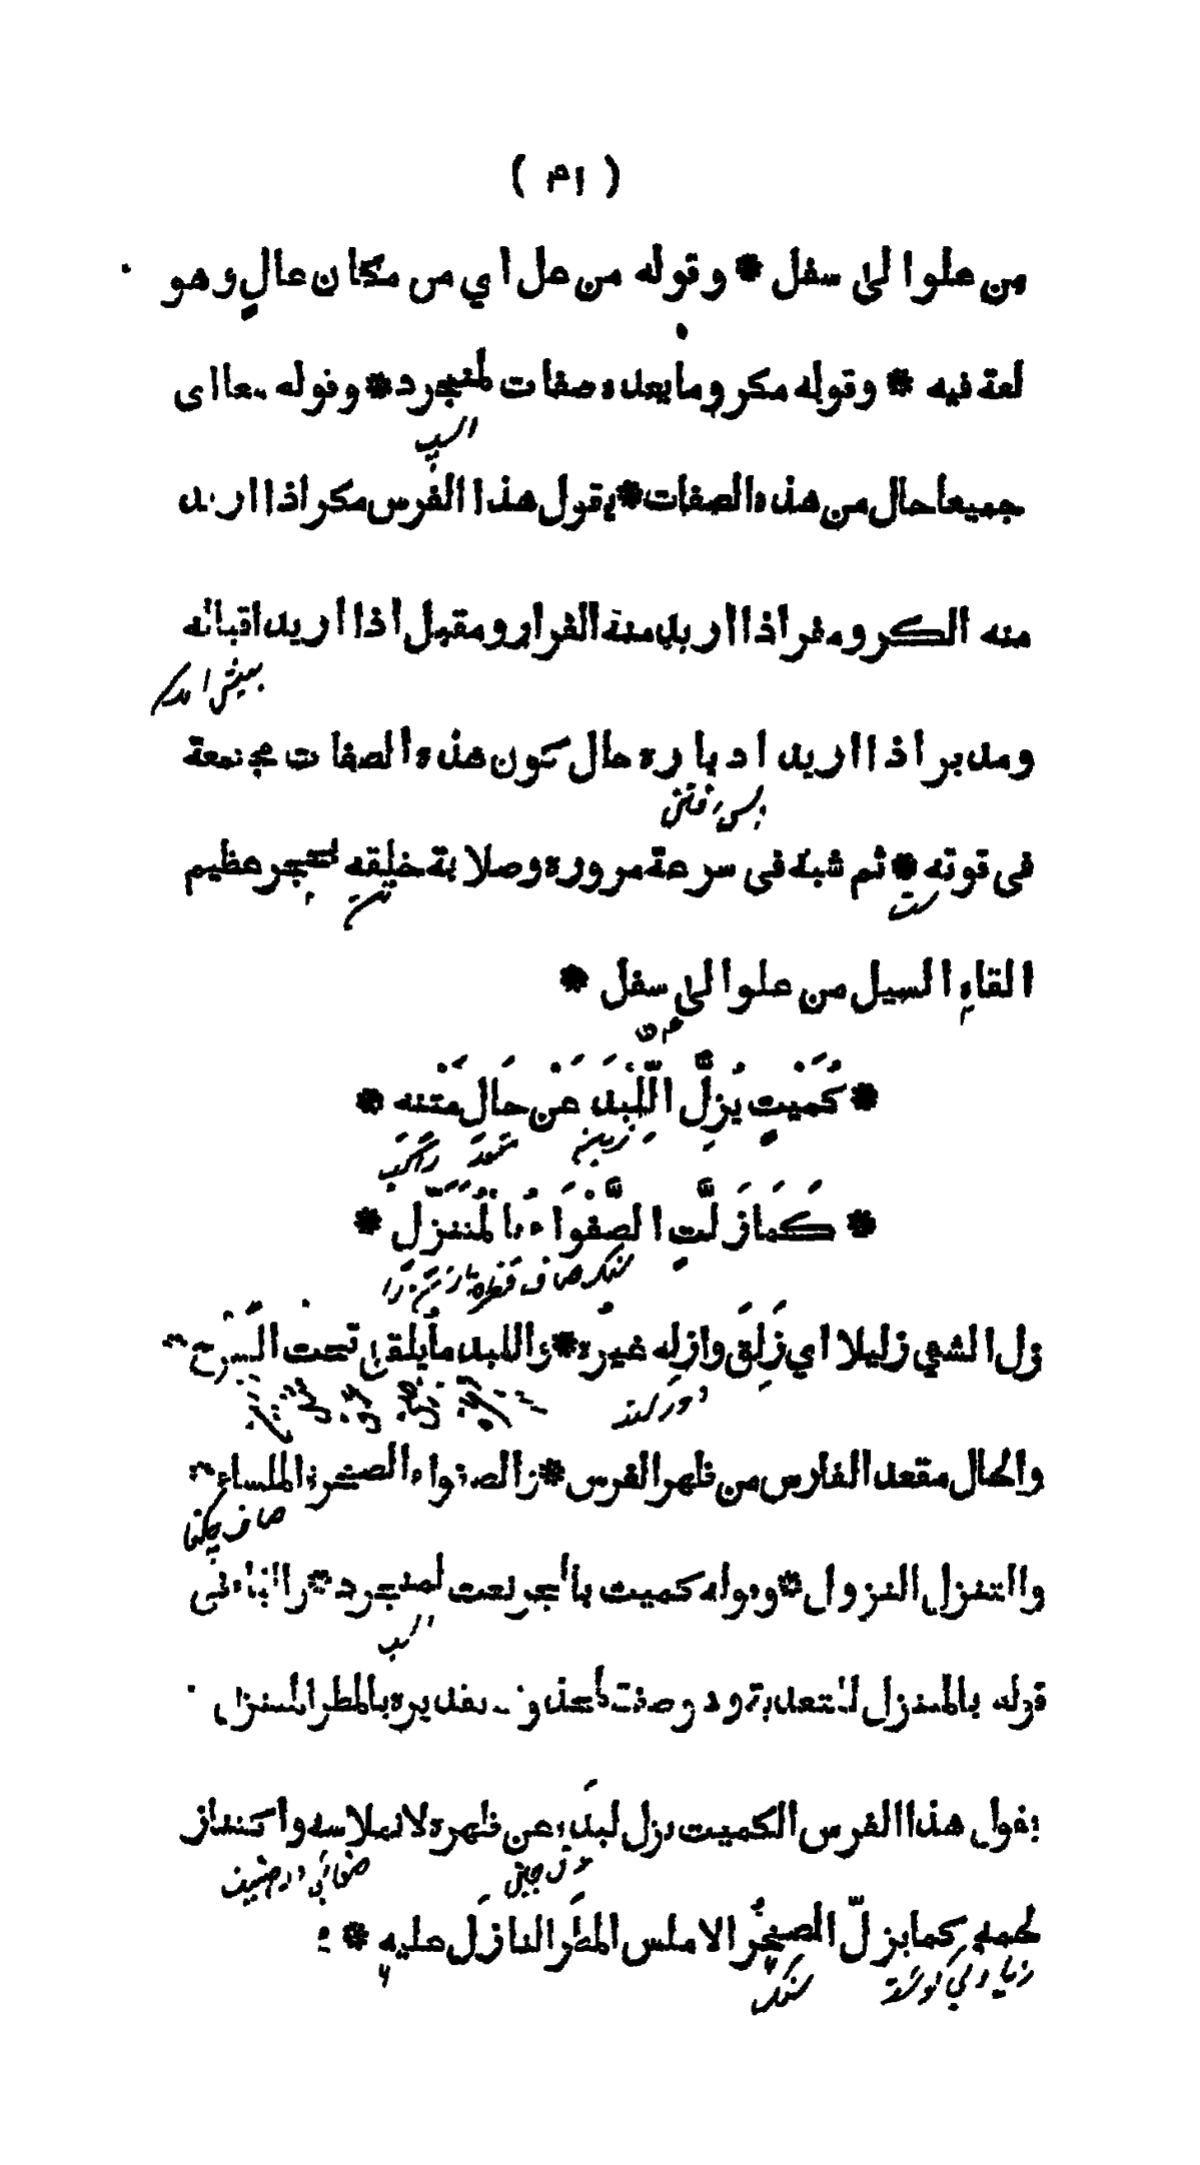 ( ٤١ )
من علوا لى سفل * وقوله من عل اي من مكان عال وهو
لغة فيه * وقوله مكر وما بعده صفات لمنجرد * وقوله معا اى
اسپ
جميعا حال من هذه الصفات * يقول هذا الفرس مكر اذا اريد
منه الكر ومفر اذا اريد منه الفرار ومقبل اذا اريد اقباله
ومدبر اذا اريد ادباره حال كون هذه الصفات مجتمعة
پس رفتن
فى قوته * ثم شبه فى سرعة مروره وصلابة خلقه بحجر عظيم
القاه السيل من علوا لى سفل *
* كُمَيْتٍ يُزِلُّ اللِّبْدَ عَنْ حَالِ مَتْنه *
* كَمَا زَلَّتِ الصَّفْوَاءُ بالْمُتَنَزِّلِ *
زل الشي زليلا اي زَلِقَ وازله غيره * واللبد ما يلقى تحت السرج *
دور كند
والحال مقعد الفارس من ظهر الفرس * والصفواء الصخرة الملساء *
صاف چكنا
والتنزل النزول * وقوله كميت بالجر نعت لمنجرد * والباء فى
اسپ
قوله بالمتنزل للتعدية وهو صفت لمحذوف تقديره بالمطر المتنزل
يقول هذا الفرس الكميت يزل لبده عن ظهره لانملاسه واكتناز
لحمه كما يزلّ الصخرُ الاملس المطَر النازل عليه *
سنگ